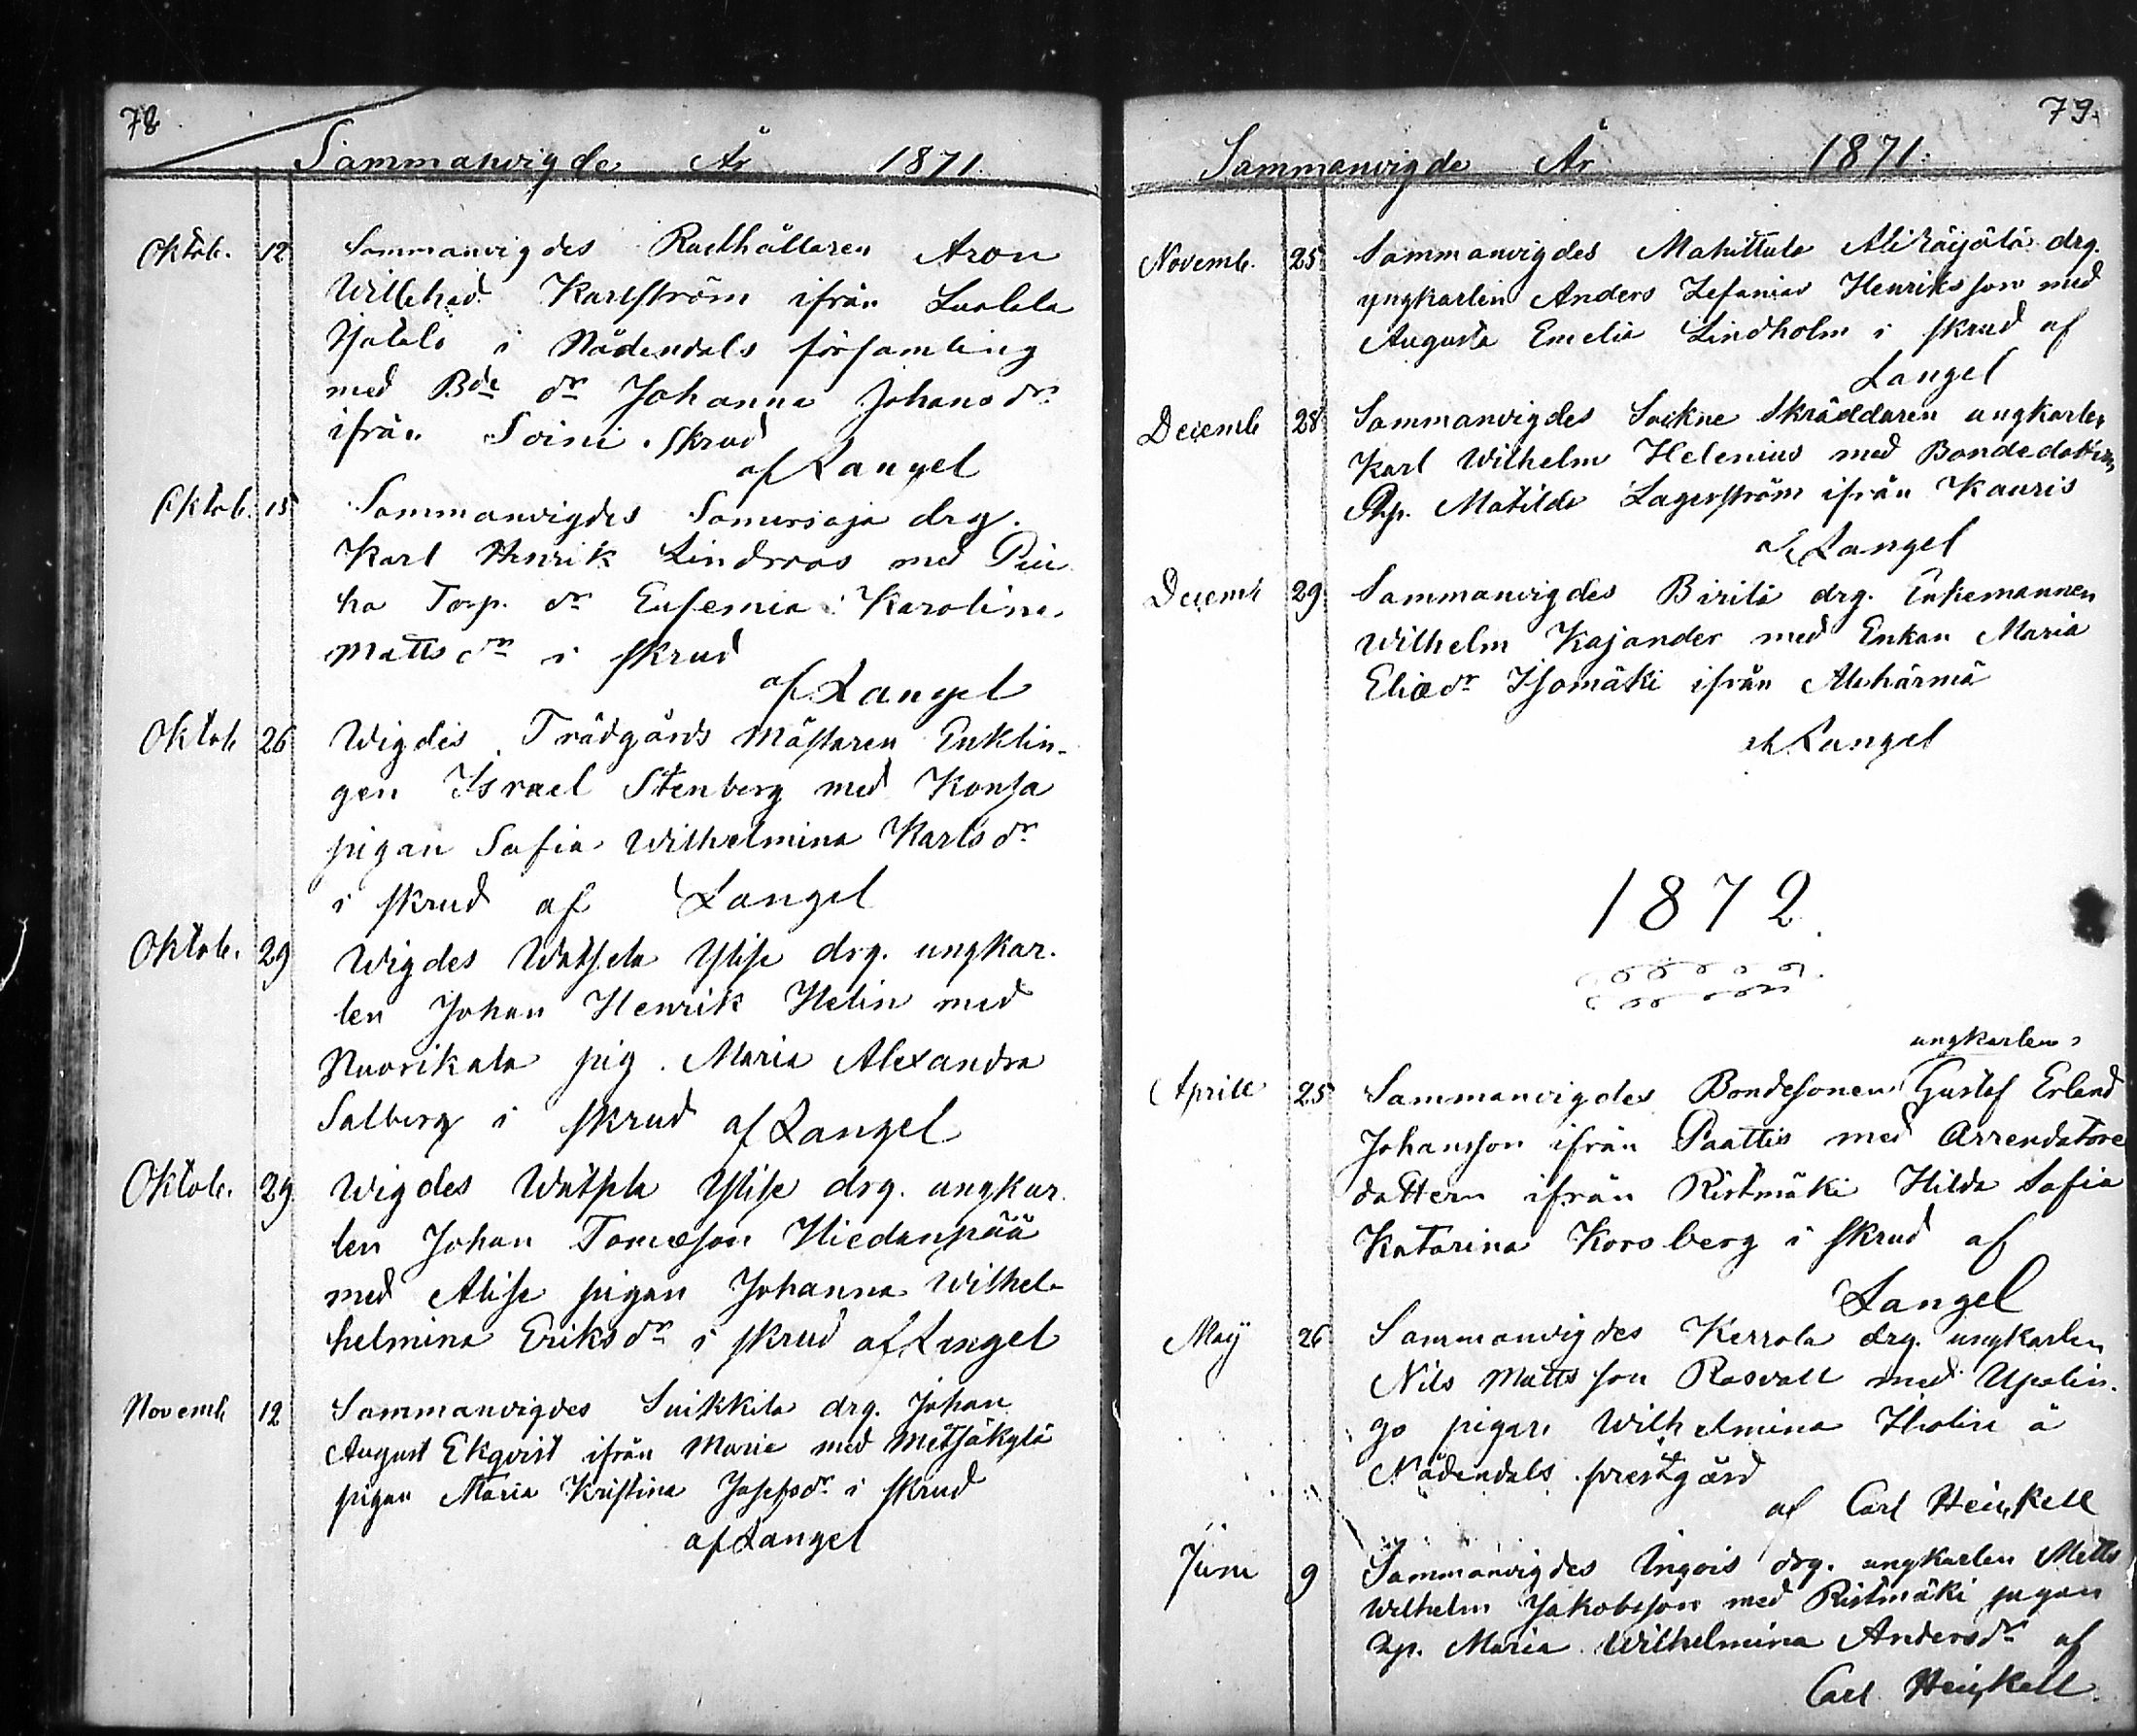 78
Sammanvigde År 1871
Oktob. 12 Sammanvigdes Rusthållaren Aron
Willehad Karlström ifrån Luolala
Isotalo i Nådendals församling
med Bde dr Johanna Johansdr
ifrån Soini i skrud
af Langel
Oktob. 15 Sammanvigdes Somersoja drg.
Karl Henrik Lindroos med Piu
ha Torp. dr Eufemia Karolina
Mattsdr i skrud
af Langel
Oktob 26 Wigdes Trädgårds Mästaren Enklin-
gen Israel Stenberg med Konsa
pigan Sofia Wilhelmina Karlsdr
i skrud af Langel
Oktob. 29 Wigdes Watsela Ylise drg. ungkar-
len Johan Henrik Helin med
Nuorikala pig. Maria Alexandra
Salberg i skrud af Langel
Oktob. 29 Wigdes Watsela Ylise drg. ungkar
len Johan Tomæson Hiedanpää
med Alise pigan Johanna Wilhel-
helmina Eriksdr i skrud af Langel
Novemb 12 Sammanvigdes Suikkila drg. Johan
August Ekqvist ifrån Marie med Metsäkylä
pigan Maria Kristina Josefsdr i skrud
af Langel
79.
Sammanvigde År 1871.
Novemb. 25 Sammanvigdes Mahittula drg.
yngkarlen Anders Zefanias Henriksson med
Augusta Emelia Lindholm i skrud af
Langel
Decemb 28 Sammanvigdes Sockne Skräddaren ungkarlen
Karl Wilhelm Helenius med Bondedottren
Matilda Lagerström ifrån Kauris
af Langel
Decemb 29 Sammanvigdes Birilä drg. Enkemannen
Wilhelm Kajander med Enkan Maria
Eliædr Isomäki ifrån Alahärmä
af Langel
1872.
ungkarlen
Aprill 25 Sammanvigdes Bondesonen Gustaf Erland
Johansson ifrån Paattis med Arrendatore
dattern ifrån Ristmäki Hilda Sofia
Katarina Korsberg i skrud af
Langel
Maÿ 26 Sammanvigdes Kerrola drg. ungkarlen
Nils Mattsson Rosvall med Upalin-
go pigan Wilhelmina å
Nådendals prestgård
af Carl Heinkell
Juni 9 Sammanvigdes Ingois drg. ungkarlen Matts
Wilhelm Jakobsson med Ristmäki pigan
Maria Wilhelmina Andersdr af
Carl Heinkell.